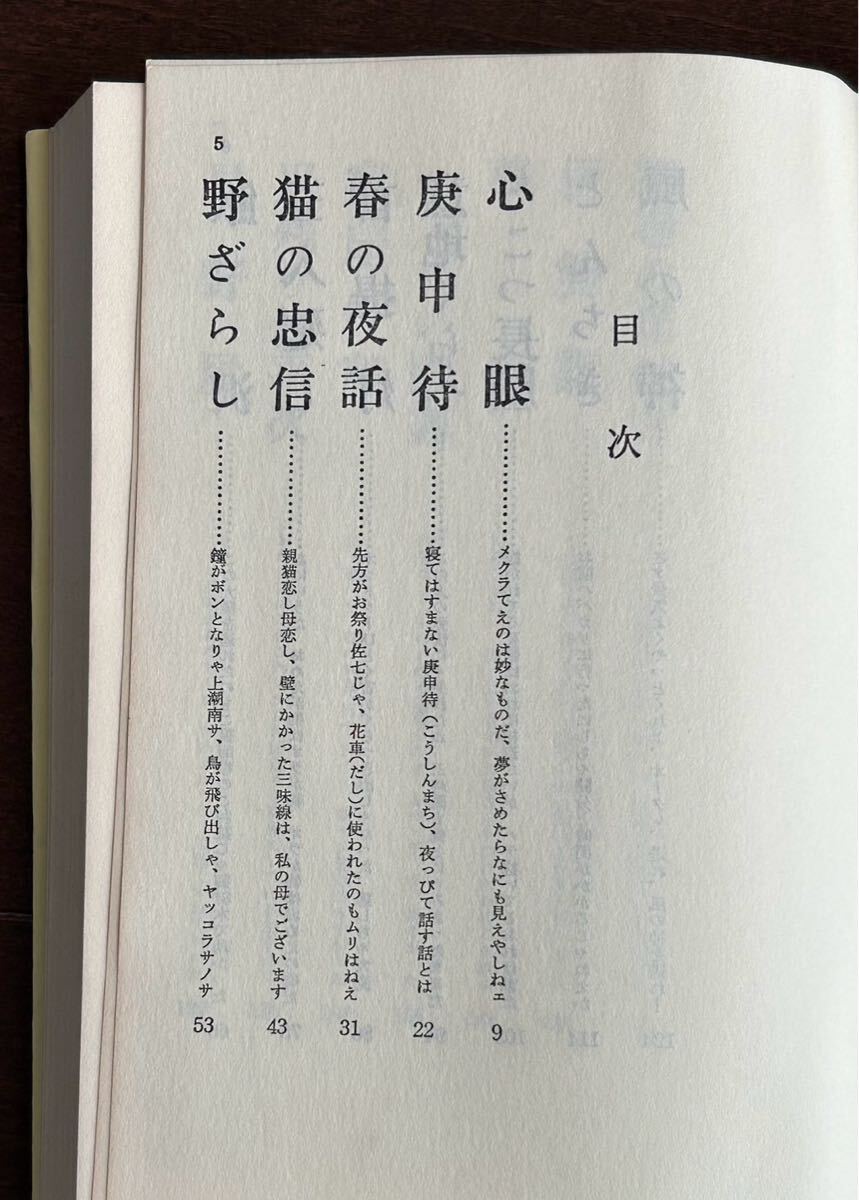 目次
心眼………………メクラてえのは妙なものだ、夢がさめたらなにも見えやしねェ 9
庚申待………………寝てはすまない庚申待(こうしんまち)、夜っぴて話す話とは 22
春の夜話………………先方がお祭り佐七じゃ、花車(だし)に使われたのもムリはねえ 31
猫の忠信………………親猫恋し母恋し、壁にかかった三味線は、私の母でございます 43
野ざらし………………鐘がボンとなりゃ上潮南サ、鳥が飛び出しゃ、ヤッコラサノサ 53
5